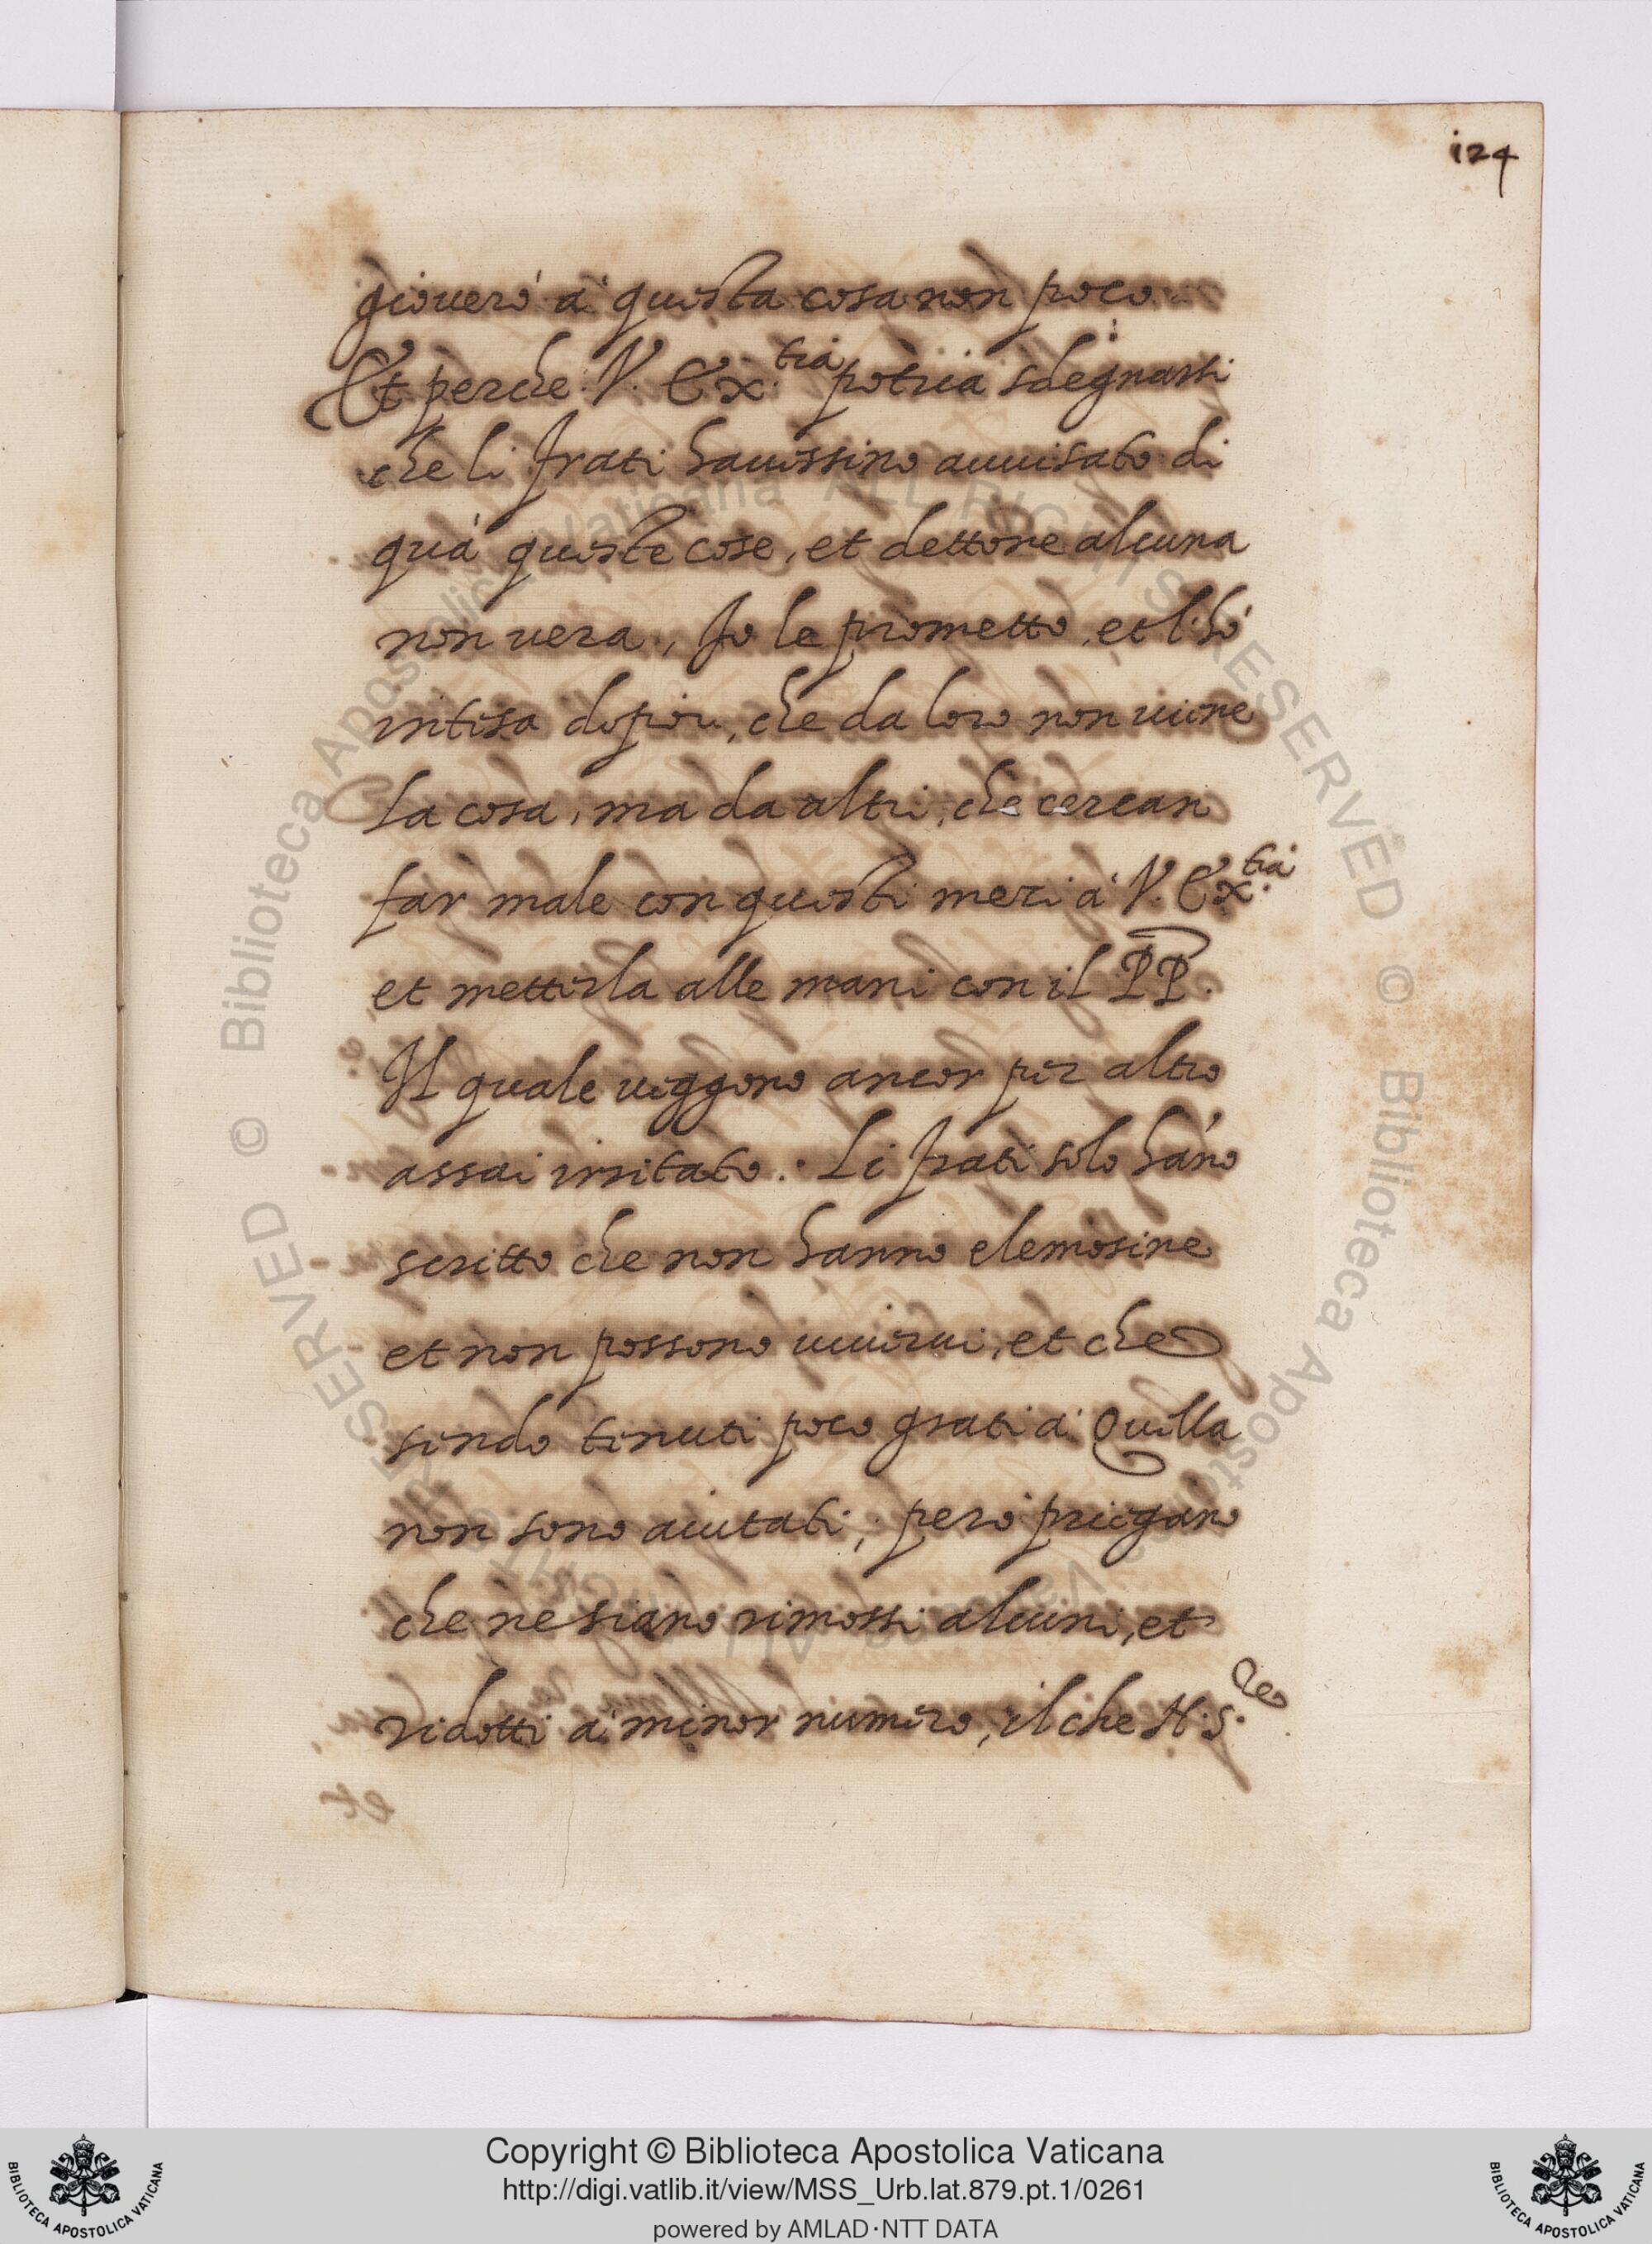 124
giouerò à questa cosa non poco
Et perche V. Ex.tia potria sdegnarsi
che li frati hauessino auuisato di
quà queste cose, et dettone alcuna
non uera, Io le prometto, et l'hò
intesa dopoi, che da loro non uiene
la cosa, ma da altri, che cercan
far male con questi mezi à V. Ex.tia
et metterla alle mani con il PP.
Il quale ueggono ancor per altro
assai irritato. Li frati solo hāno
scritto che non hanno elemosine
et non possono uiuerui, et che
sendo tenuti poco grati à Quella
non sono aiutati; però priegano
che ne siano rimossi alcuni, et
ridotti à minor numero, il che N. S.re
Biblioteca Apostolica Vaticana ALL RIGHTS RESERVED ©
Copyright © Biblioteca Apostolica Vaticana
http://digi.vatlib.it/view/MSS_Urb.lat.879.pt.1/0261
powered by AMLAD·NTT DATA
BIBLIOTECA APOSTOLICA VATICANA
BIBLIOTECA APOSTOLICA VATICANA